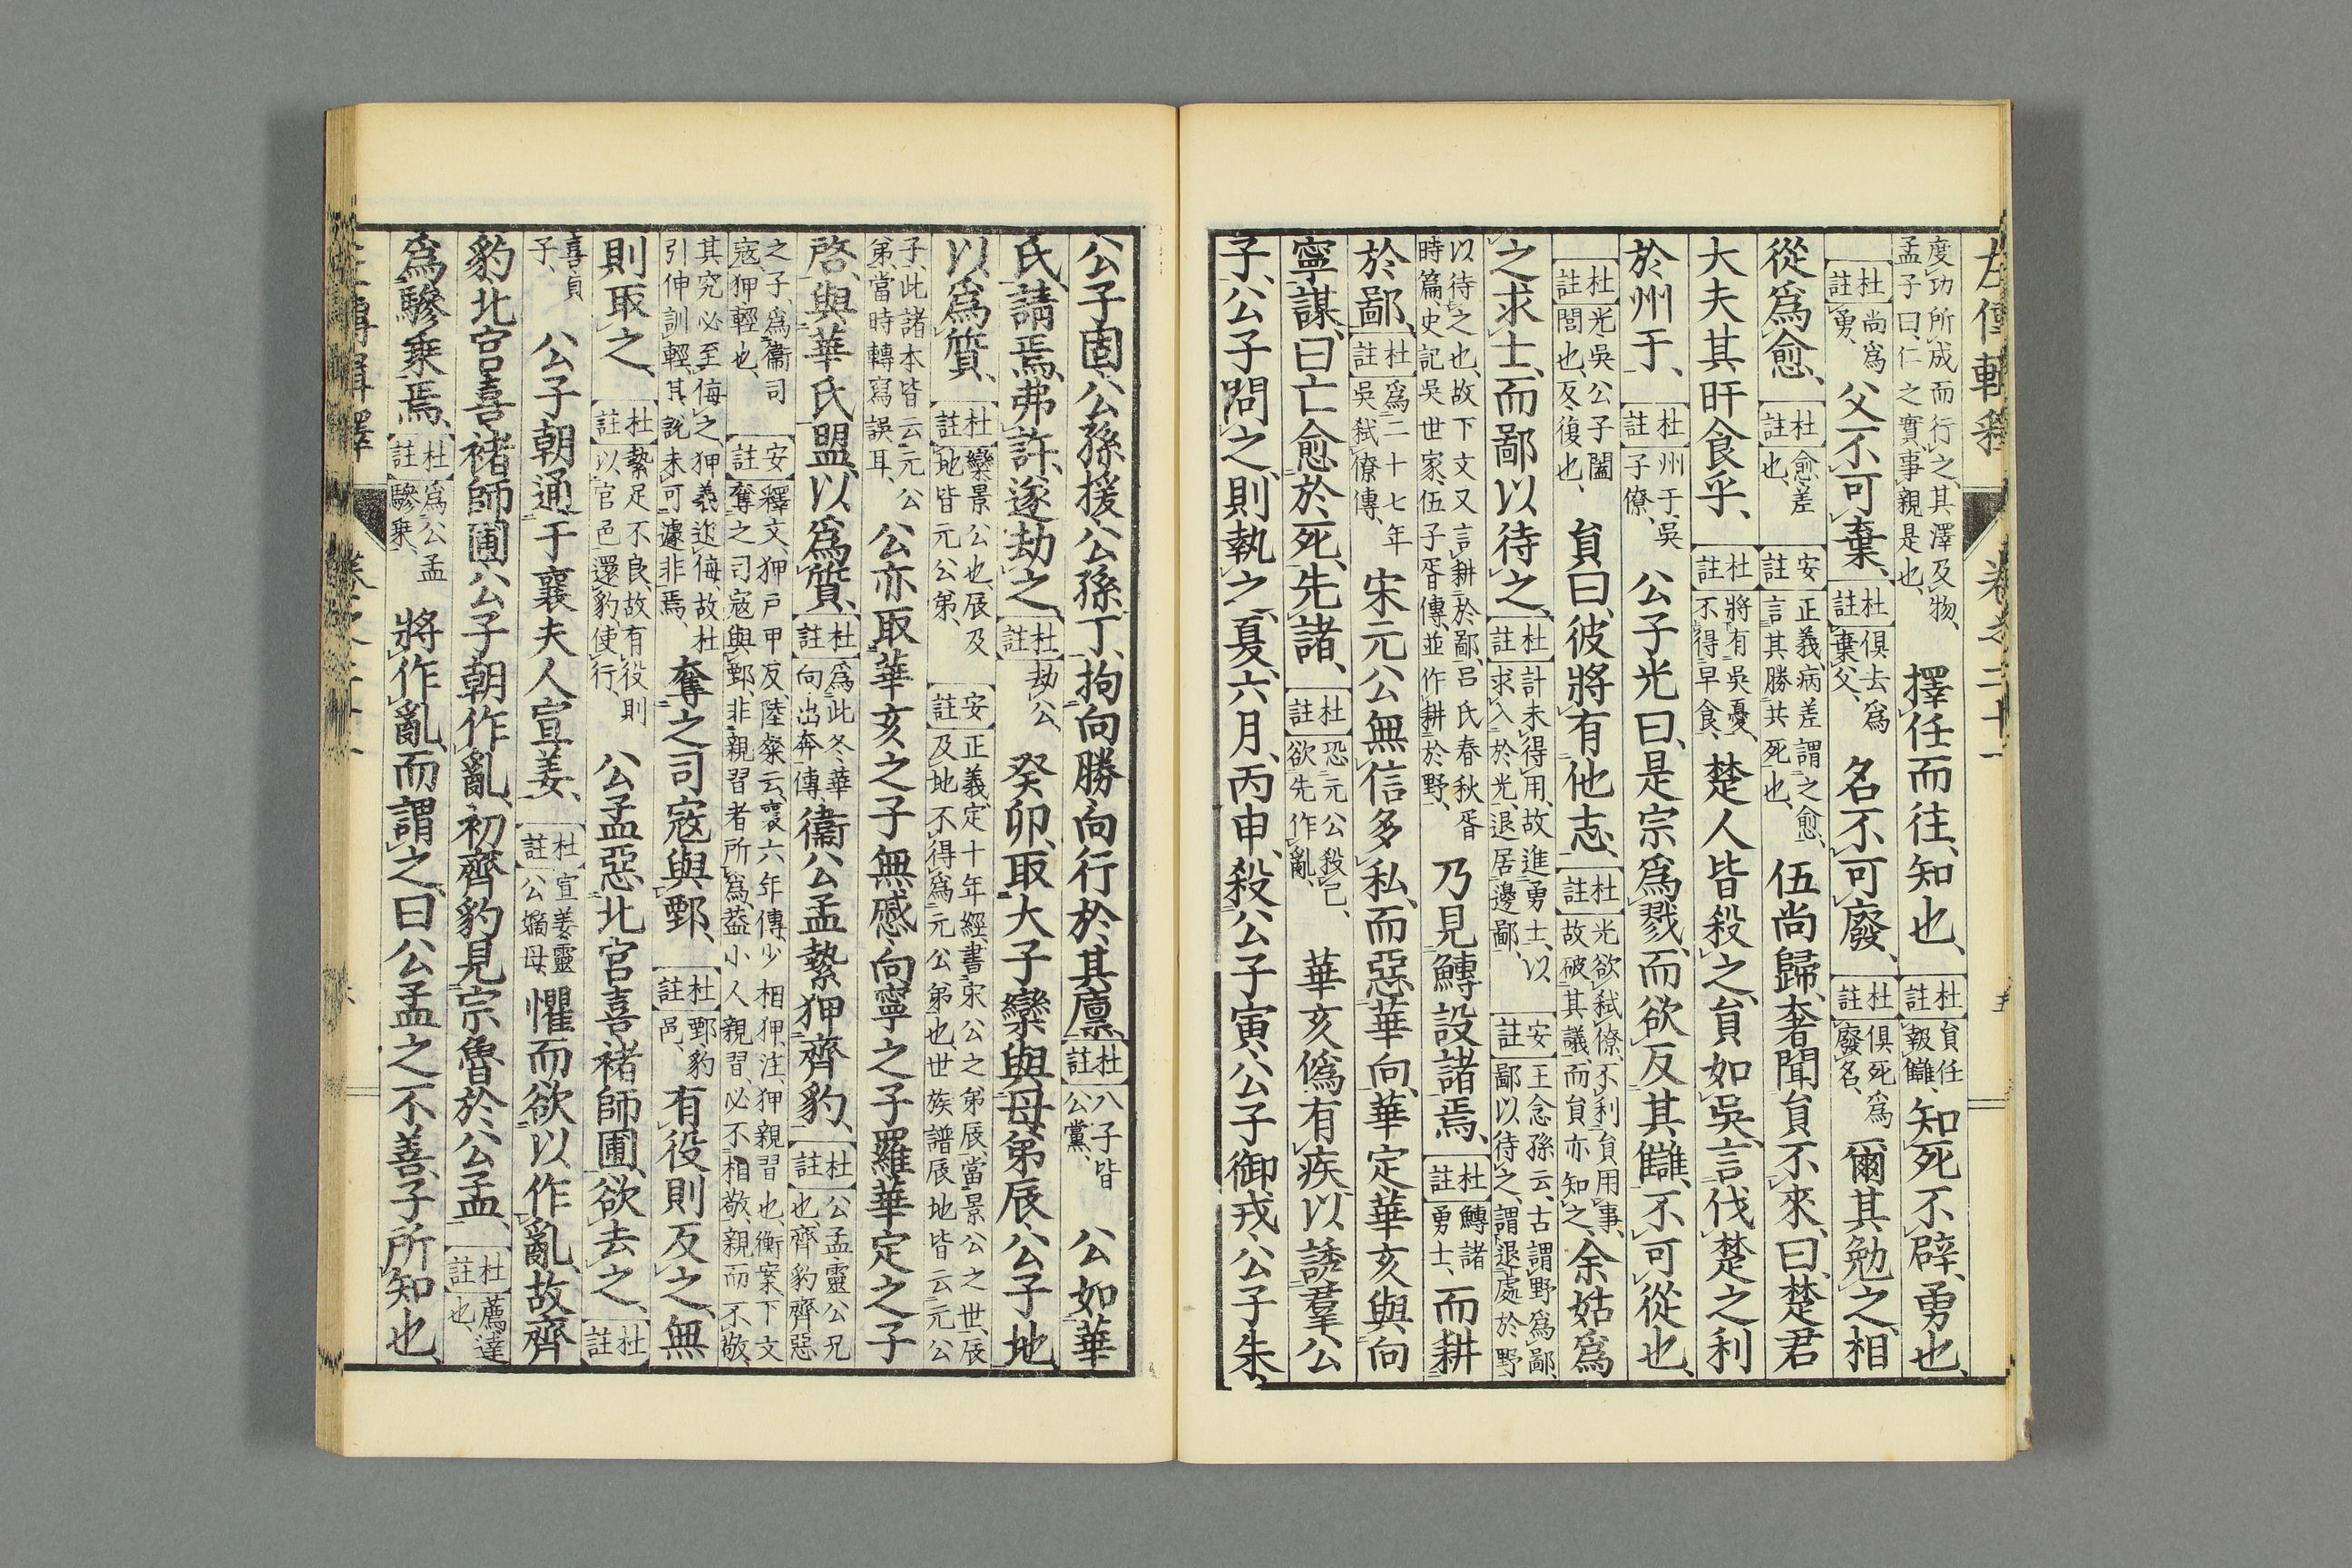 左傳輯釋 卷之二十一 五
度功所成而行之其澤及物、孟子曰、仁之實事親是也、擇任而往、知也、杜註員任報讎、知死不辟、勇也、
杜註尚爲勇、父不可棄、杜註俱去爲棄父、名不可廢、杜註俱死爲廢名、爾其勉之、相
從爲愈、杜註愈差也、安註正義、病差謂之愈、言其勝共死也、伍尚歸、奢聞員不來、曰、楚君
大夫其旰食乎、杜註將有吳憂、不得早食、楚人皆殺之、員如吳、言伐楚之利
於州于、杜註州于、吳子僚、公子光曰、是宗爲戮、而欲反其讎、不可從也、
杜註光、吳公子闔閭也、反、復也、員曰、彼將有他志、杜註光欲弒僚、不利員用事、故破其議、而員亦知之、余姑爲
之求士、而鄙以待之、杜註計未得用、故進勇士、以求入於光、退居邊鄙、安註王念孫云、古謂野爲鄙、鄙以待之、謂退處於野
以待之也、故下文又言耕於鄙、呂氏春秋胥時篇、史記吳世家、伍子胥傳、並作耕於野、乃見鱄設諸焉、杜註鱄諸勇士、而耕
於鄙、杜註爲二十七年吳弒僚傳、宋元公無信多私、而惡華向、華定華亥與向
寧謀、曰亡愈於死、先諸、杜註恐元公殺己、欲先作亂、華亥僞有疾、以誘羣公
子、公子問之、則執之、夏、六月、丙申、殺公子寅、公子御戎、公子朱、
公子固、公孫援、公孫丁、拘向勝、向行於其廩、杜註八子皆公黨、公如華
氏請焉、弗許、遂劫之、杜註劫公、癸卯、取大子欒、與母弟辰、公子地、
以爲質、杜註欒、景公也、辰及地、皆元公弟、安註正義、定十年經、書宋公之弟辰、當景公之世、辰及地不得爲元公弟也、世族譜、辰地皆云元公
子、此諸本皆云元公弟、當時轉寫誤耳、公亦取華亥之子無慼、向寧之子羅、華定之子
啓、與華氏盟、以爲質、杜註爲此冬華向出奔傳、衞公孟縶狎齊豹、杜註公孟、靈公兄也、齊豹、齊惡
之子、爲衞司寇、狎輕也、安註釋文、狎戶甲反、陸粲云、襄六年傳、少相狎、注、狎親習也、衡案下文奪之司寇與鄄、非親習者所爲、葢小人親習、必不相敬、親而不敬、
其究必至侮之、狎義近侮、故杜引伸訓輕、其說未可遽非焉、奪之司寇與鄄、杜註鄄、豹邑、有役則反之、無
則取之、杜註縶足不良、故有役則以官邑還豹、使行、公孟惡北宮喜褚師圃、欲去之、杜註
喜貞子、公子朝通于襄夫人宣姜、杜註宣姜、靈公嫡母、懼而欲以作亂、故齊
豹、北宮喜、褚師圃、公子朝作亂、初齊豹見宗魯於公孟、杜註薦達也、
爲驂乘焉、杜註爲公孟驂乘、將作亂、而謂之、曰公孟之不善、子所知也、